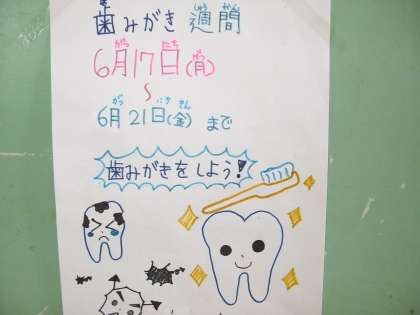 歯みがき週間
6月17日(月)
～
6月21日(金)まで
歯みがきをしよう!